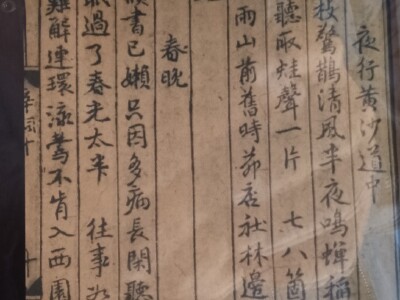 夜行黃沙道中
枝驚鵲清風半夜鳴蟬稻
聽取蛙聲一片 七八箇
雨山前舊時茆店社林邊
春晚
讀書已嬾只因多病長閑聽
眠過了春光太半 往事如
難解連環流鶯不肯入西園